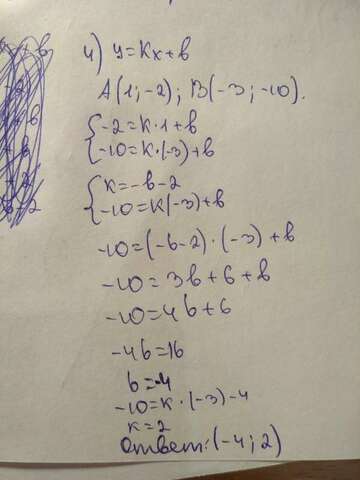 4) y=Kx+b
A(1;-2); B(-3;-10).
{-2=K·1+b
-10=K·(-3)+b
{K=-b-2
-10=K(-3)+b
-10=(-b-2)·(-3)+b
-10=3b+6+b
-10=4b+6
-4b=16
b=-4
-10=K·(-3)-4
K=2
Ответ:(-4;2)